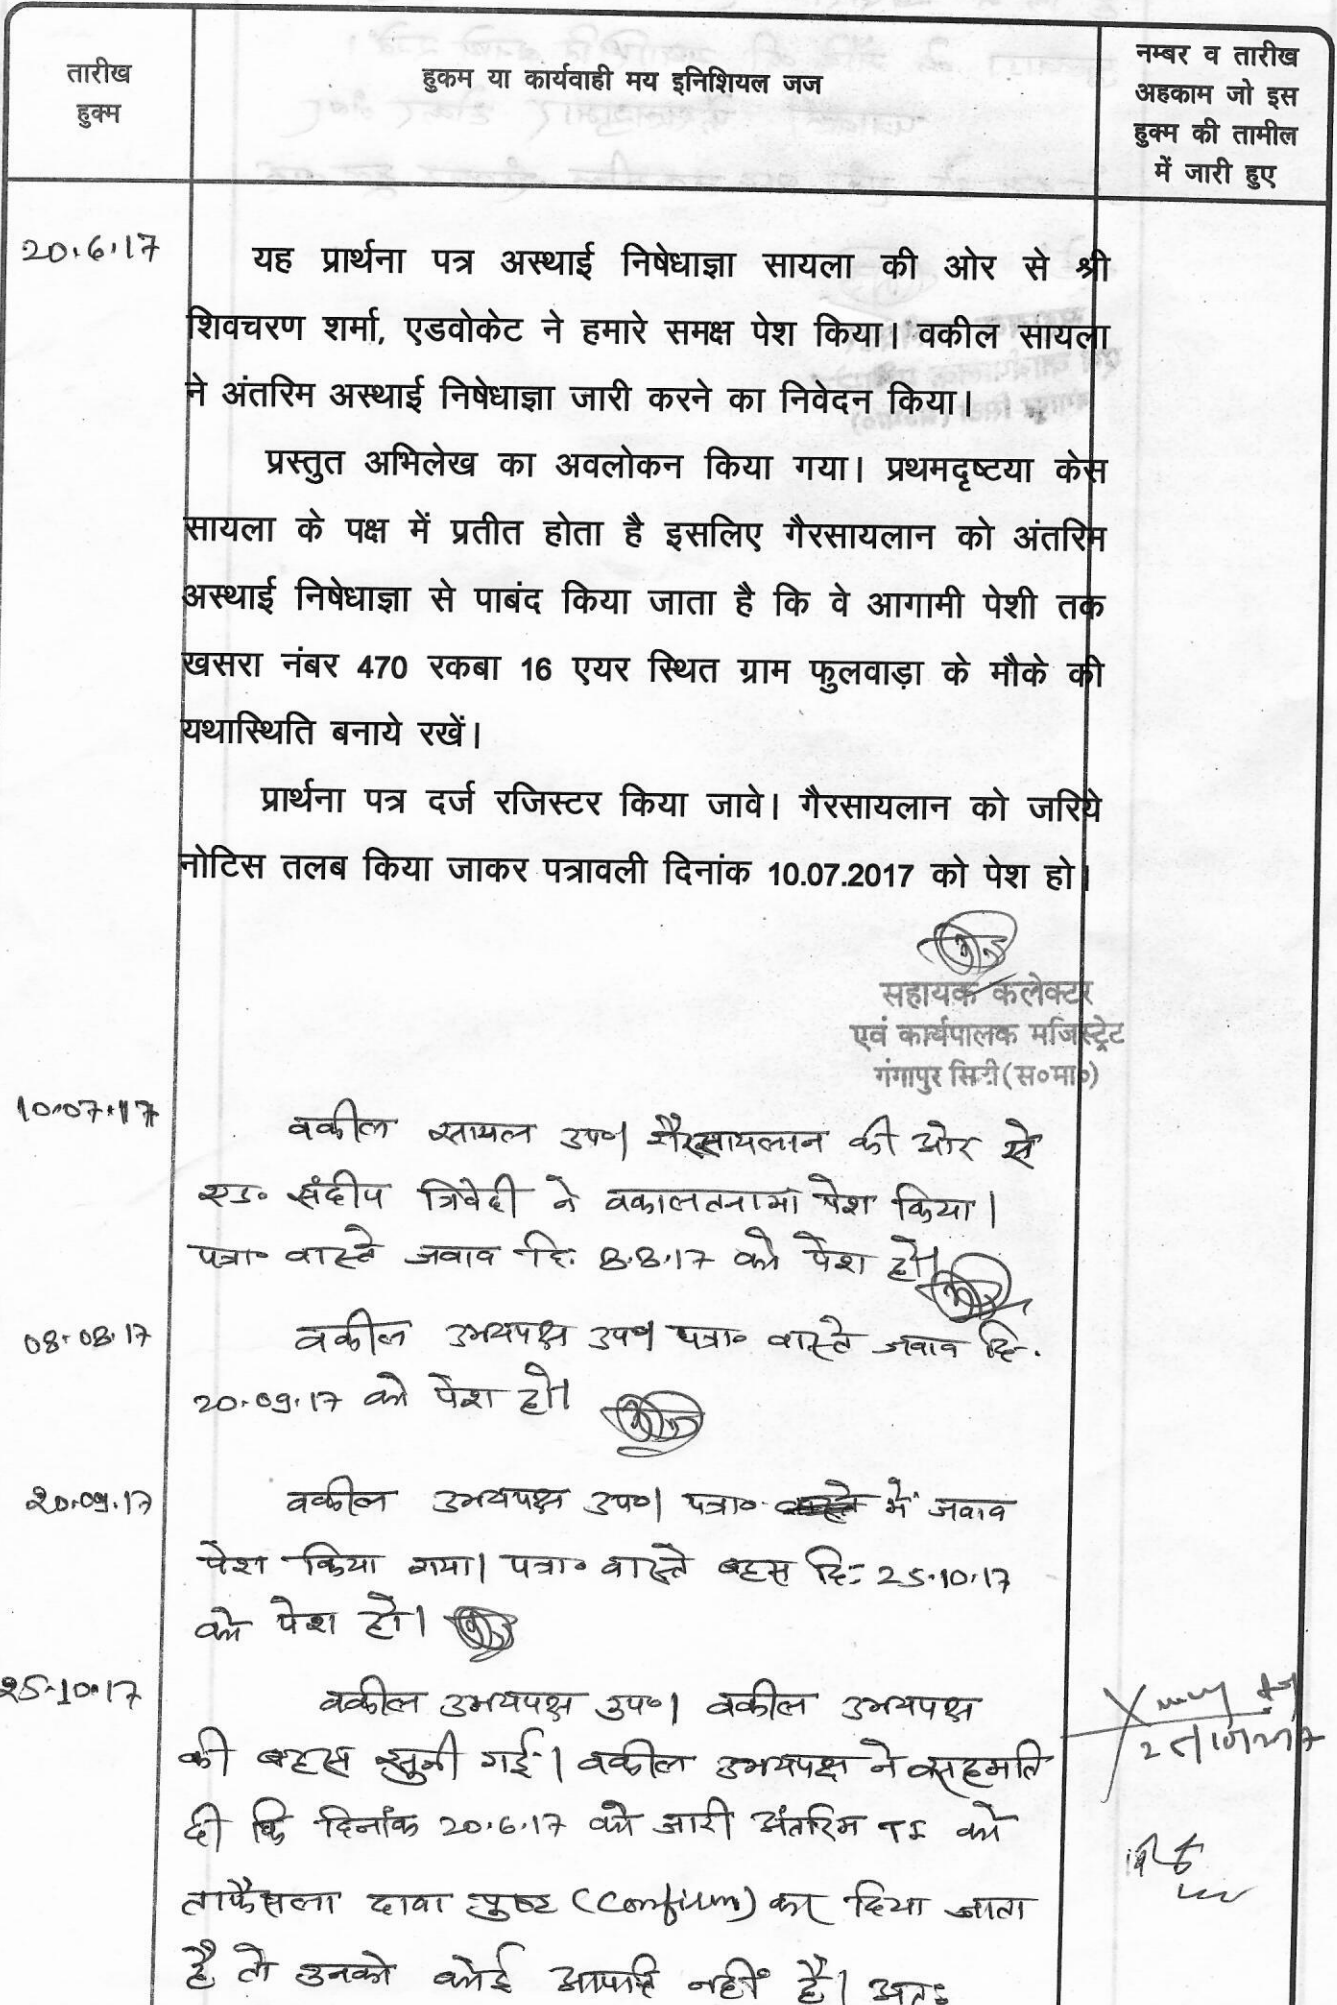 तारीख
हुक्म
हुकम या कार्यवाही मय इनिशियल जज
नम्बर व तारीख
अहकाम जो इस
हुक्म की तामील
में जारी हुए
20.6.17
यह प्रार्थना पत्र अस्थाई निषेधाज्ञा सायला की ओर से श्री
शिवचरण शर्मा, एडवोकेट ने हमारे समक्ष पेश किया। वकील सायला
ने अंतरिम अस्थाई निषेधाज्ञा जारी करने का निवेदन किया।
प्रस्तुत अभिलेख का अवलोकन किया गया। प्रथमदृष्टया केस
सायला के पक्ष में प्रतीत होता है इसलिए गैरसायलान को अंतरिम
अस्थाई निषेधाज्ञा से पाबंद किया जाता है कि वे आगामी पेशी तक
खसरा नंबर 470 रकबा 16 एयर स्थित ग्राम फुलवाड़ा के मौके की
यथास्थिति बनाये रखें।
प्रार्थना पत्र दर्ज रजिस्टर किया जावे। गैरसायलान को जरिये
नोटिस तलब किया जाकर पत्रावली दिनांक 10.07.2017 को पेश हो।
सहायक कलेक्टर
एवं कार्यपालक मजिस्ट्रेट
गंगापुर सिटी (स०मा०)
10.07.17
वकील सायल उप०। गैरसायलान की ओर से
एड० संदीप त्रिवेदी ने वकालतनामा पेश किया।
पत्रा० वास्ते जवाब दि. 8.8.17 को पेश हो।
08.08.17
वकील उभयपक्ष उप०। पत्रा० वास्ते जवाब दि.
20.09.17 को पेश हो।
20.09.17
वकील उभयपक्ष उप०। पत्रा० में जवाब
पेश किया गया। पत्रा० वास्ते बहस दि: 25.10.17
को पेश हो।
25.10.17
वकील उभयपक्ष उप०। वकील उभयपक्ष
की बहस सुनी गई। वकील उभयपक्ष ने सहमति
दी कि दिनांक 20.6.17 को जारी अंतरिम TI को
ताफैसला दावा पुष्ट (Confirm) कर दिया जाता
है तो उनको कोई आपत्ति नहीं है। अतः